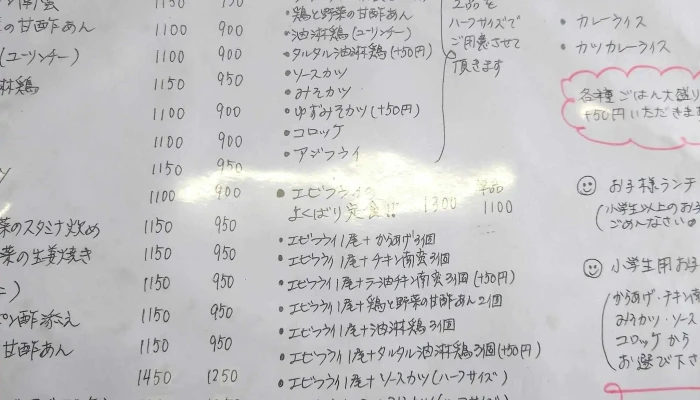 1150
の甘酢あん 1100 900
(ユーリンチー) 1100 900
淋鶏 1150 950
1100 900
1100 900
1150 950
1100 900
菜のスタミナ炒め 1150 950
菜の生姜焼き 1150 950
1150 950
ポン酢添え 1150 950
甘酢あん 1150 950
1450 1250
・鶏と野菜の甘酢あん
・油淋鶏(ユーリンチー)
・タルタル油淋鶏(+50円)
・ソースカツ
・みそカツ
・ゆずみそカツ(+50円)
・コロッケ
・アジフライ
2品を
ハーフサイズで
ご用意させて
頂きます
・エビフライ 単品
よくばり定食!! 1300 1100
・エビフライ1尾+からあげ3個
・エビフライ1尾+チキン南蛮3個
・エビフライ1尾+ラー油チキン南蛮3個(+50円)
・エビフライ1尾+鶏と野菜の甘酢あん2個
・エビフライ1尾+油淋鶏3個
・エビフライ1尾+タルタル油淋鶏3個(+50円)
・エビフライ1尾+ソースカツ(ハーフサイズ)
・カレーライス
・カツカレーライス
各種ごはん大盛り
+50円いただきま
お子様ランチ
(小学生以上のお子
ごめんなさい
小学生用お子
(からあげ・チキン南
みそカツ・ソース
コロッケから
お選び下さ